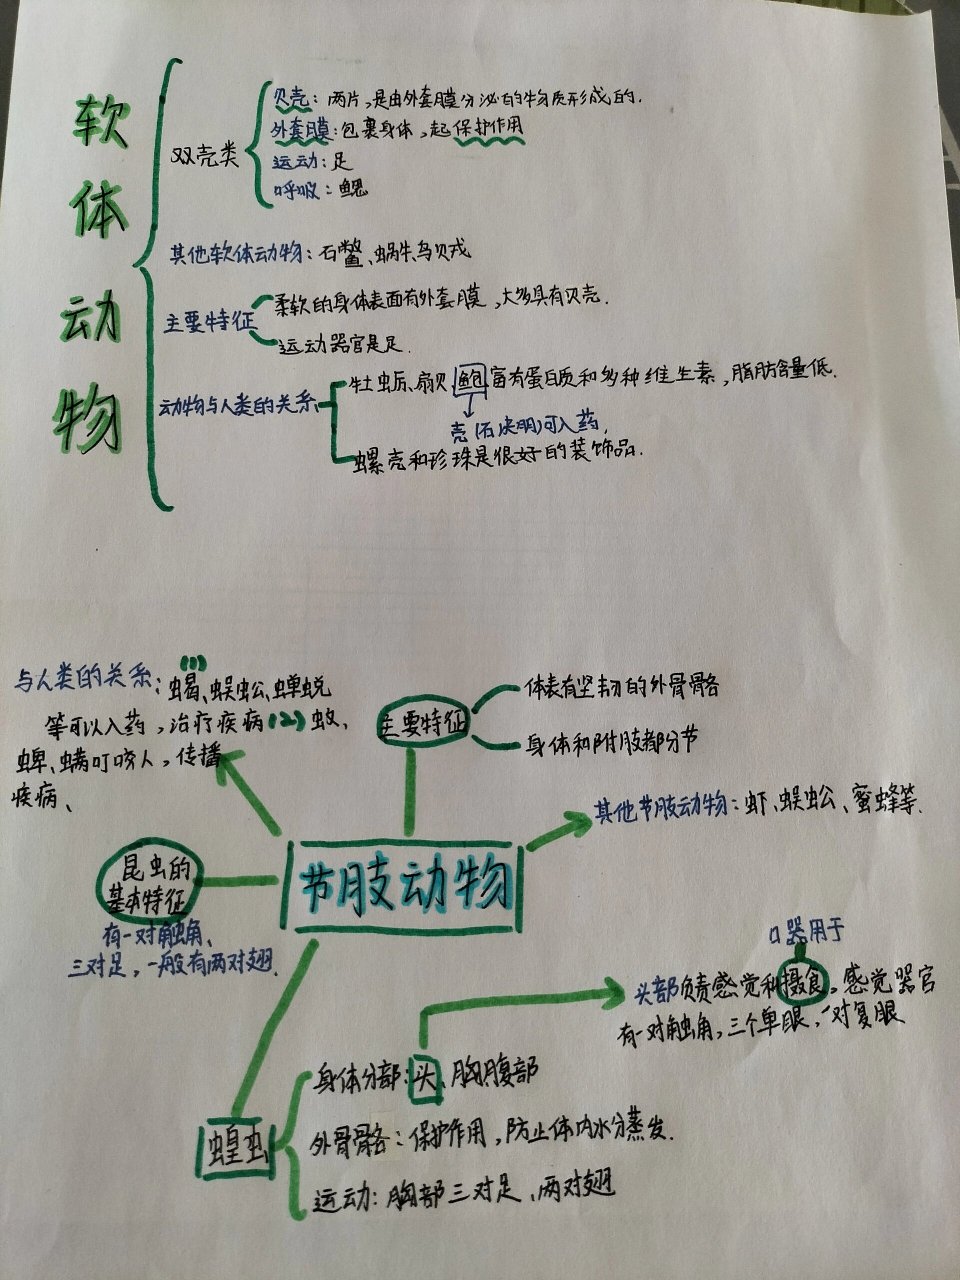 软体动物
双壳类
贝壳：两片，是由外套膜分泌的物质形成的.
外套膜：包裹身体，起保护作用
运动：足
呼吸：鳃
其他软体动物：石鳖、蜗牛、乌贝戎
主要特征
柔软的身体表面有外套膜，大多具有贝壳.
运动器官是足.
动物与人类的关系
牡虫厉、扇贝、鲍富有蛋白质和多种维生素，脂肪含量低.
壳(石决明)可入药，
螺壳和珍珠是很好的装饰品.
与人类的关系：(1)蝎、蜈蚣、蝉蜕
等可以入药，治疗疾病(2)蚊、
蜱、螨叮咬人，传播
疾病、
主要特征
体表有坚韧的外骨骼
身体和附肢都分节
其他节肢动物：虾、蜈蚣、蜜蜂等.
节肢动物
昆虫的
基本特征
有一对触角、
三对足，一般有两对翅.
口器用于
头部负责感觉和摄食，感觉器官
有一对触角，三个单眼，一对复眼
蝗虫
身体分部：头、胸腹部
外骨骼：保护作用，防止体内水分蒸发.
运动：胸部三对足、两对翅